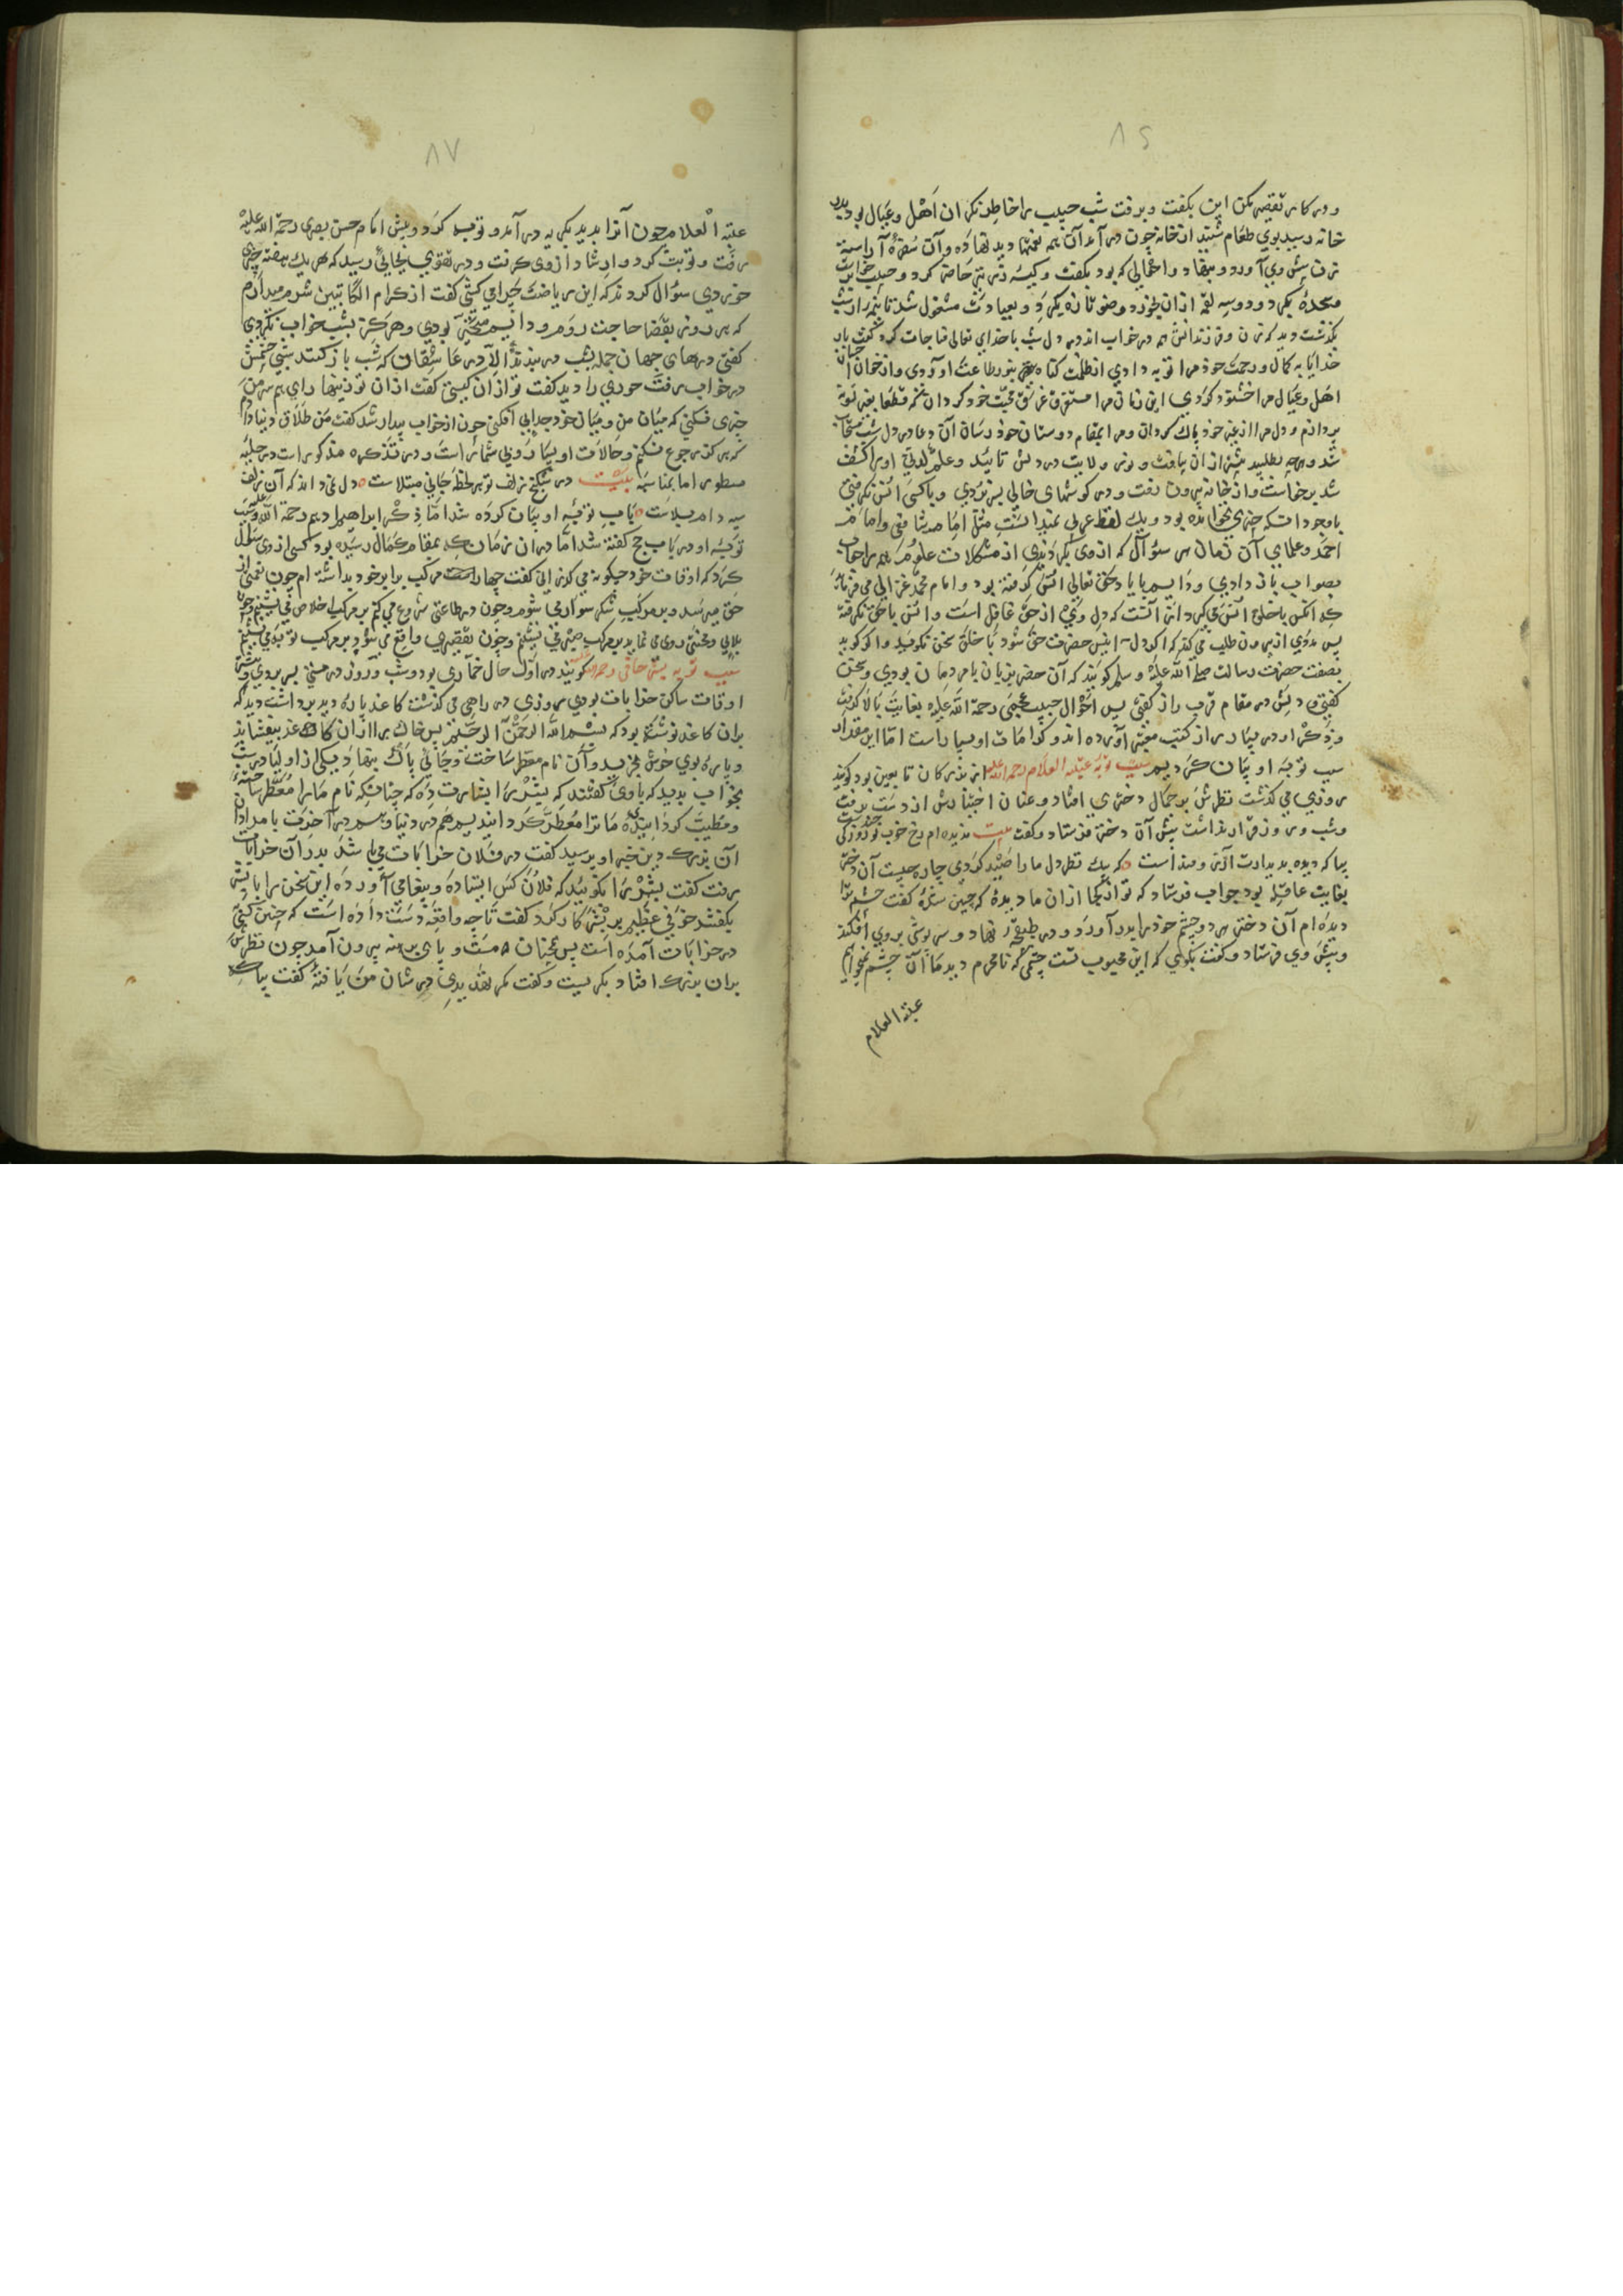 ۸۶
و در کار تقصیر مکن این بگفت و برفت شب حبیب را خاطر نگران اهل و عیال بود بدر
خانه رسید بوی طعام شنید از خانه چون در آمد آن همه نعمتها دید نهاده و آن سفرهٔ آراسته
زن پیش وی آورد و بنهاد و احوالی که بود بگفت و کیسه زر نیز حاضر کرد و حبیب خواست
سجدهٔ بکرد و دو سه لقمه از آن بخورد و وضو تازه بکرد و بعبادت مشغول شد تا از شب
بگذشت دید که زن و فرزندانش همه در خواب اند در دل شب با خدای تعالی مناجات کرد گفت بار
خدایا بکمال و رحمت خود مرا توبه دادی از ظلمت گناه بنور طاعت آوردی و از خان
اهل و عیال مرا خشنود کردی این زمان مرا مستغرق محبت خود گردان که قطعا بغیر تو
پردازم و دل مرا از غیر خود پاک گردان و مرا بمقام دوستان خود رسان آن دعا در دل شب مستجاب
شد و هرچه طلبید بیش از آن یافت و نور ولایت در دلش تابید و علم لدنی او را کشف
شد برخاست و از خانه بیرون رفت و در گوشهای خالی بسر بردی و با کسی انس نگرفتی
با وجود آنکه چیزی نخوانده بود و یک لفظ عربی نمیدانست مثل امام شافعی و امام
احمد و علمای آن زمان هر سؤال که از وی بکردندی از مشکلات علوم همه را جواب
بصواب باز دادی و دایم با یاد حق تعالی انس گرفته بود و امام محمد غزالی می فرماید
که انکس با خلق انس می گیرد از آنست که دل وی از حق غافل است و انس با حق نگرفته
پس مردی از بیرون طلب می کند که اگر دل انیس حضرت حق شود با خلق سخن نگوید و اگر گوید
بصفت حضرت رسالت صلی الله علیه و سلم گویند که آن حضرت بزبان با مردمان بودی و سخن
گفتی و دلش در مقام قرب راز گفتی پس احوال حبیب عجمی رحمة الله علیه بغایت بالا گرفت
و ذکر او در بسیاری از کتب معتبر آورده اند و کرامات او بسیار است اما این مقدار
سبب توبه او بیان کردیم سبب توبه عتبه الغلام رحمه الله علیه از بزرگان تابعین بود گویند
روزی می گذشت نظرش بر جمال دختری افتاد و عنان اختیارش از دست برفت
و شب و روز قرار نداشت پیش آن دختر فرستاد و گفت بیت ندیده ام رخ خوب تو
بیا که دیده بدیدارت آرزومند است که بیک نظر دل ما را صید کردی چاره چیست آن دختر
بغایت عاقله بود جواب فرستاد که تو از کجا از آن ما دیدهٔ که چنین شدهٔ گفت چشم ترا
دیده ام آن دختر هر دو چشم خود را بدر آورد و در طبقچه نهاد و سرپوشی بروی افکند
و پیش وی فرستاد و گفت بگوی که این محبوب تست چشمی که نامحرم دید ما آن چشم نخواهیم
عتبة الغلام
۸۷
عتبة الغلام چون آنرا بدید بگریه در آمد و توبه کرد و پیش امام حسن بصری رحمة الله علیه
رفت و توبت کرد و ارشاد از وی گرفت و در تقوی بجایی رسید که هر یک هفته چیزی
خوردی سؤال کردند که این ریاضت چرا می کشی گفت از کرام الکاتبین شرم میدارم
که هر روز بقضا حاجت روم و دایم متحیر بودی و هرگز بشب خواب نکردی
گفتی درهای جهان جمله بشب در بندند الا در عاشقان که شب باز کنند شبی چشمش
در خواب رفت حوری را دید گفت تو از آن کیستی گفت از آن تو زینهار ای عتبه من
چیزی نکنی که میان من و میان خود جدایی افکنی چون از خواب بیدار شد گفت من طلاق دنیا دادم
که هرگز رجوع نکنم و حالات او بسیار و بی شمار است و در تذکره مذکور است در حلیه
مسطور اما بمناسبه بیت در شکنج زلف تو هر لحظه جانی مبتلاست دل نمی داند که آن زلف
سیه دام بلاست باب توبه او بیان کرده شد اما ذکر ابراهیم ادهم رحمة الله علیه و سبب
توبه او در باب حج گفته شد اما در آن زمان که بمقام کمال رسیده بود کسی از وی سؤال
کرد که اوقات خود چگونه می گذرانی گفت چهار مرکب برابر خود بداشته ام چون نعمتی از
حق میرسد بر مرکب شکر سوار می شوم و چون در طاعتی شروع می کنم بر مرکب اخلاص می نشینم و چون
بلایی و محنتی روی می نماید بر مرکب صبر می نشینم و چون تقصیری واقع می شود بر مرکب توبه می نشینم
سبب توبه بشر حافی رحمة الله علیه گویند در اول حال خماری بود و شب و روز در مستی بسر بردی و بیشتر
اوقات ساکن خرابات بودی روزی در راهی می گذشت کاغذ پارهٔ دید برداشت دید که
بران کاغذ نوشته بود که بسم الله الرحمن الرحیم پس خاک را از آن کاغذ بیفشاند
و پارهٔ بوی خوش بخرید و آن نام معطر ساخت و بجائی پاک بنهاد یکی از اولیا در شب
بخواب بدید که با وی گفتند که بشر را بشارت ده که چنانکه نام ما را معطر ساختی
و مطیب گردانیدهٔ ما ترا معطر گردانیدیم هم در دنیا و هم در آخرت بامداد
آن بزرگ درین خبر او پرسید گفت در فلان خرابات می باشد بدر آن خرابات
رفت گفت بشر را بگوئید که فلان کس ایستاده و پیغامی آورده این سخن را با بشر
بگفتند خوفی عظیم بر بشر کار کرد گفت تا چه واقعه دست داده است که چنین کسی
در خرابات آمده است پس همچنان مست و پای برهنه بیرون آمد چون نظرش
بران بزرگ افتاد بگریست و گفت مگر تهدیدی در شان من یافتهٔ گفت بیا که